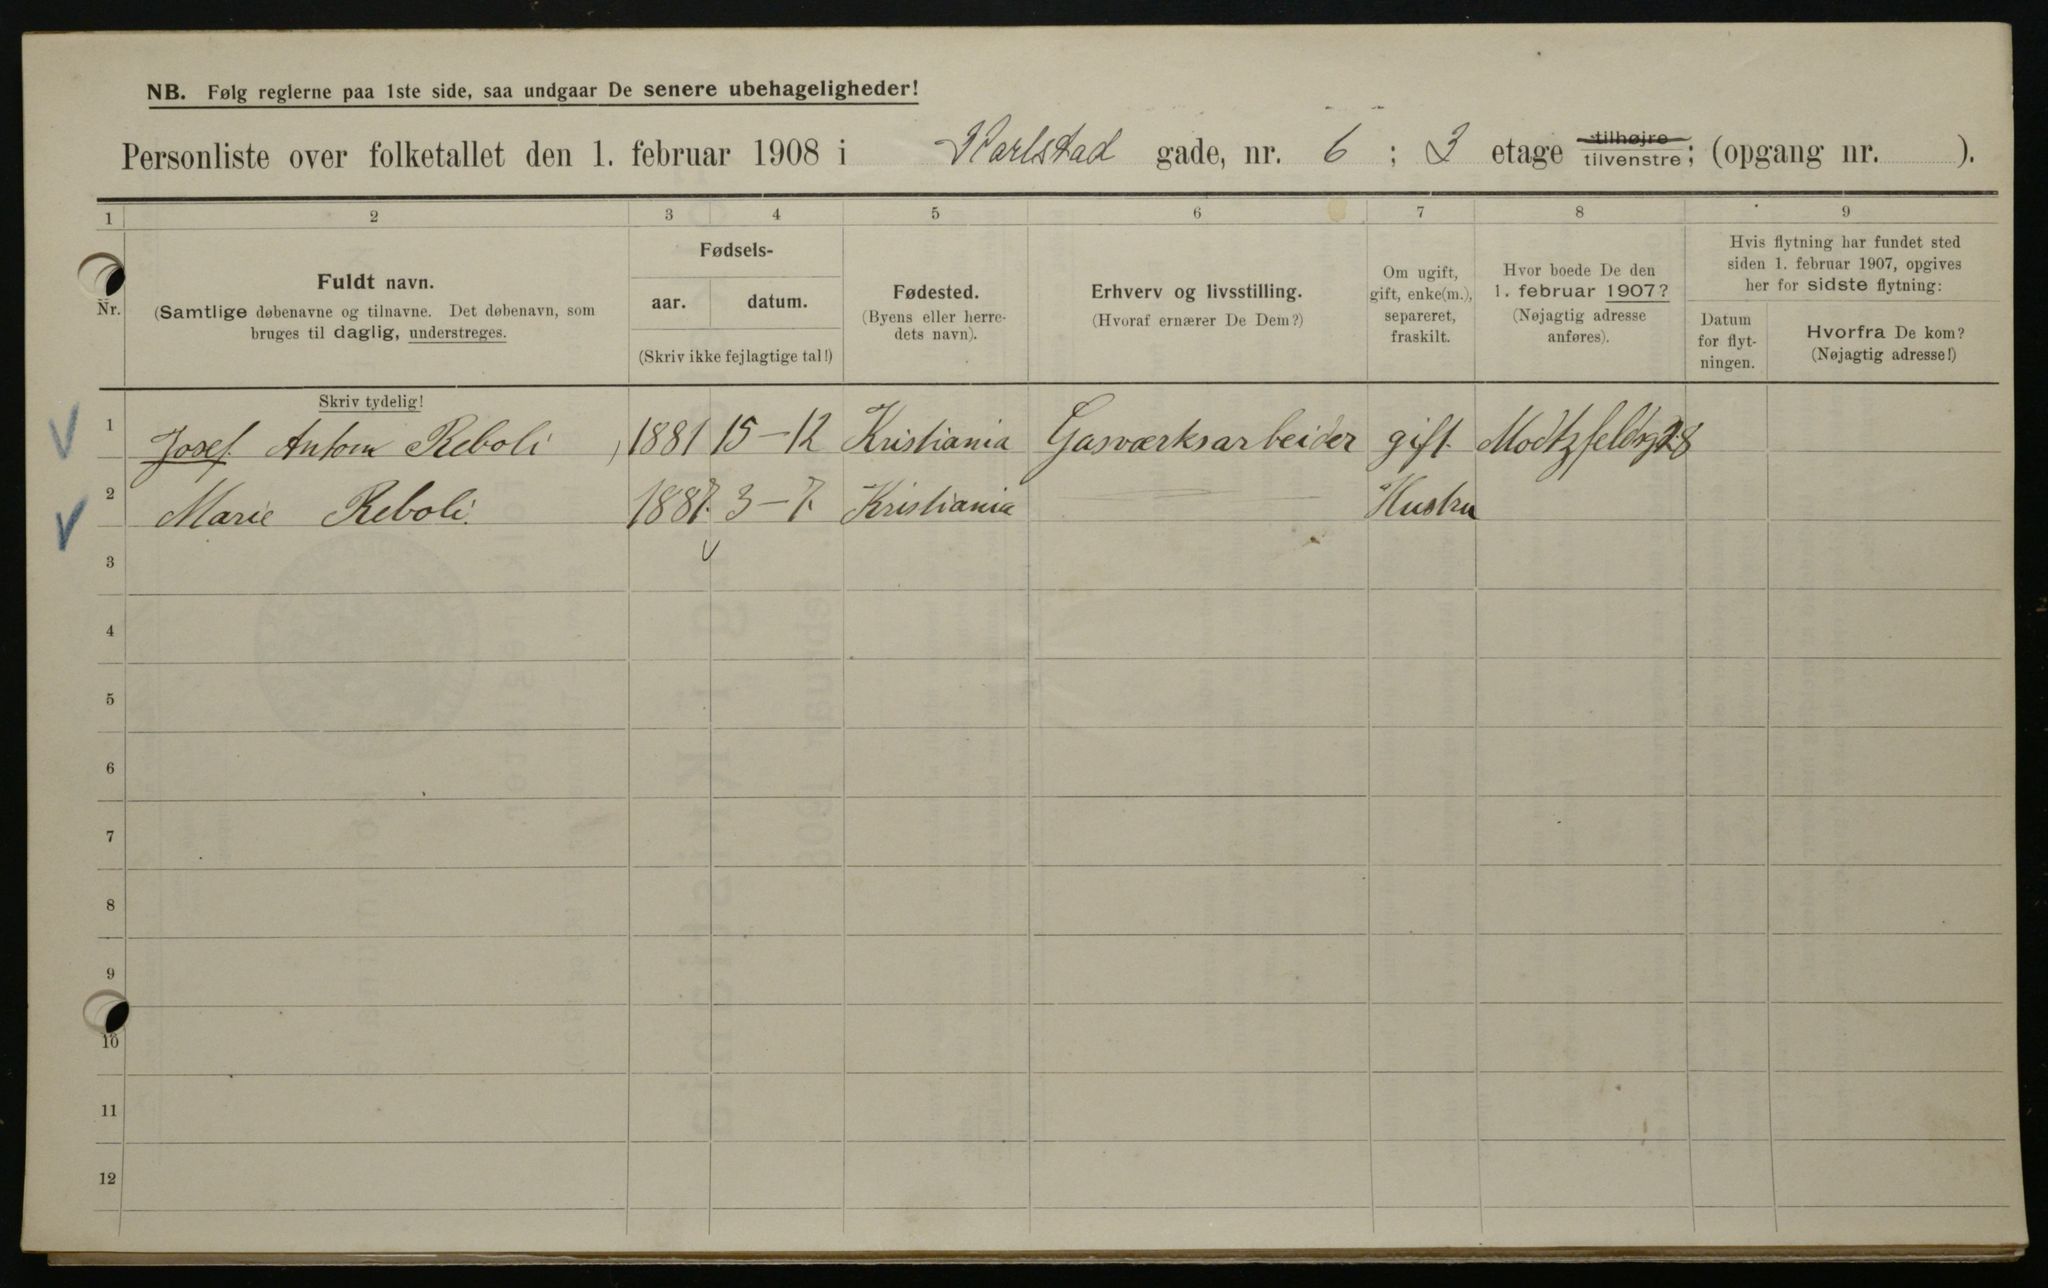 NB. Følg reglerne paa 1ste side, saa undgaar De senere ubehageligheder!
Personliste over folketallet den 1. februar 1908 i Karlstad gade, nr. 6 ; 3 etage tilhøjre tilvenstre; (opgang nr. ).
1 2 3 4 5 6 7 8 9
Nr.
Fuldt navn.
(Samtlige døbenavne og tilnavne. Det døbenavn, som
bruges til daglig, understreges.
Skriv tydelig!
Fødsels-
aar. datum.
(Skriv ikke fejlagtige tal!)
Fødested.
(Byens eller herre-
dets navn).
Erhverv og livsstilling.
(Hvoraf ernærer De Dem?)
Om ugift,
gift, enke(m.),
separeret,
fraskilt.
Hvor boede De den
1. februar 1907?
(Nøjagtig adresse
anføres).
Hvis flytning har fundet sted
siden 1. februar 1907, opgives
her for sidste flytning:
Datum
for flyt-
ningen.
Hvorfra De kom?
(Nøjagtig adresse!)
1 Josef Anton Reboli 1881 15-12 Kristiania Gasværksarbeider gift Modtzfeldsg 28
2 Marie Reboli. 1887. 3-7. Kristiania Hustru
3
4
5
6
7
8
9
10
11
12